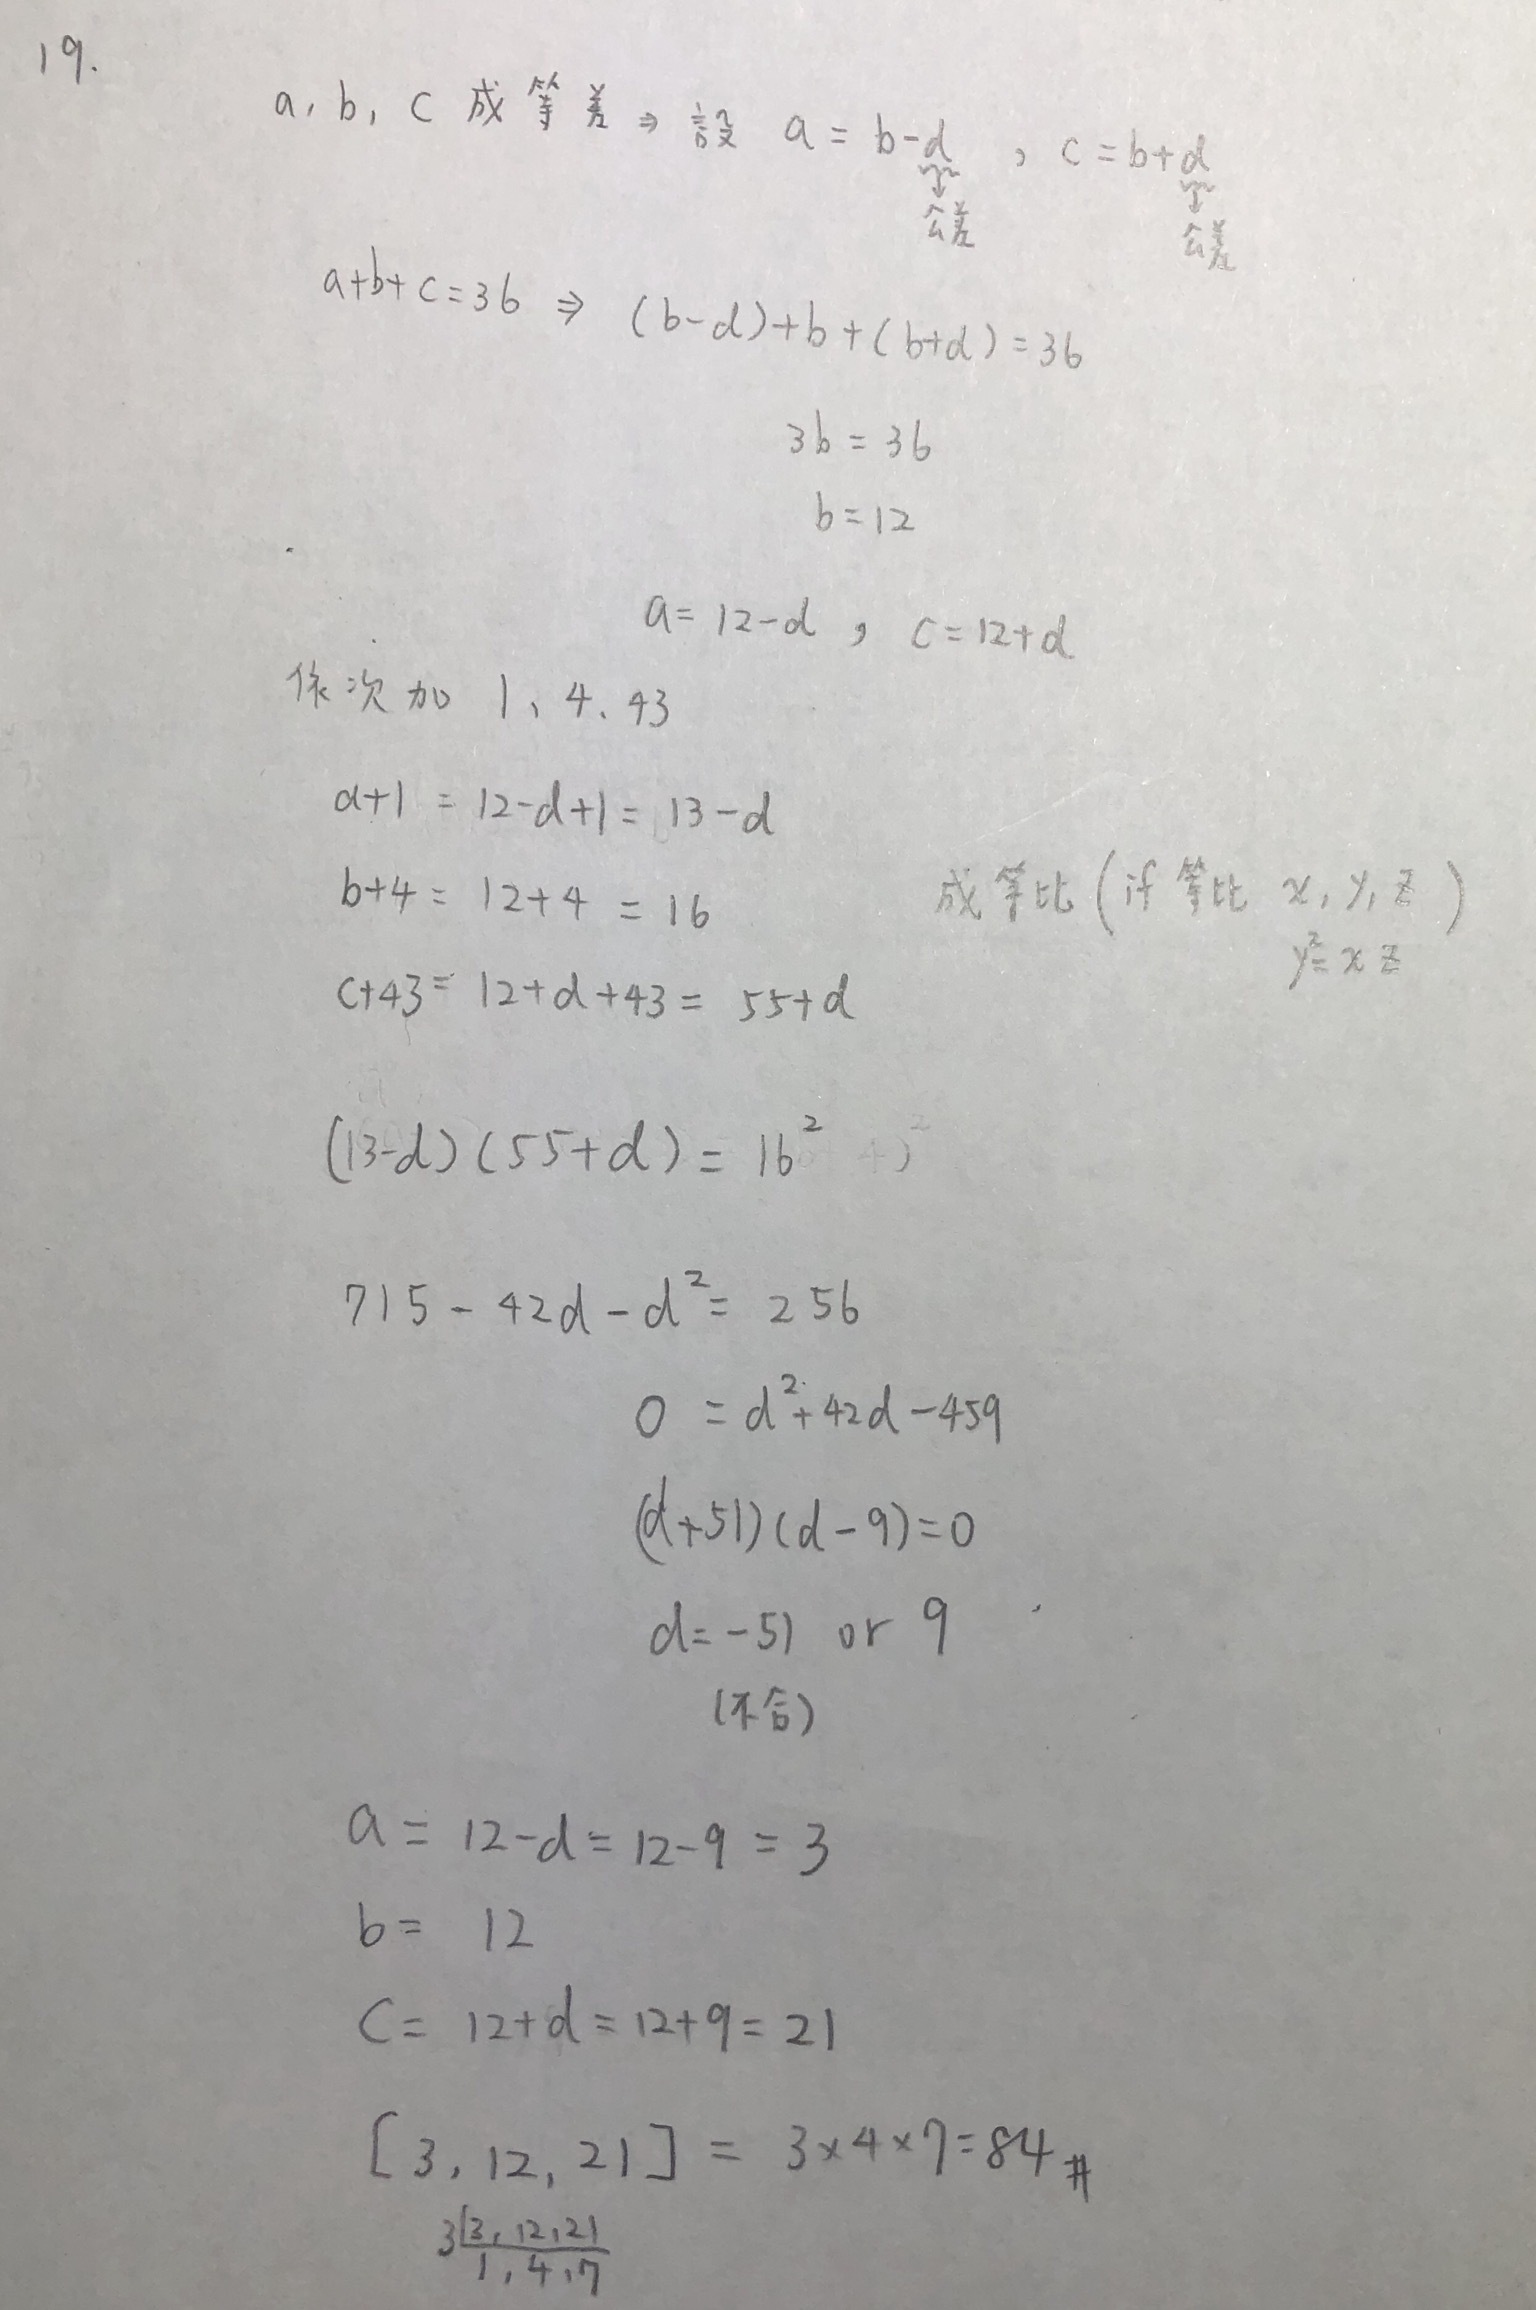 19.
a, b, c 成等差 ⇒ 設 a = b-d , c = b+d
公差 公差
a+b+c=36 ⇒ (b-d)+b+(b+d)=36
3b=36
b=12
a=12-d , c=12+d
依次加 1、4、43
a+1 = 12-d+1 = 13-d
b+4 = 12+4 = 16
成等比 (if 等比 x, y, z)
y²=xz
c+43 = 12+d+43 = 55+d
(13-d)(55+d) = 16²
715-42d-d²=256
0 = d²+42d-459
(d+51)(d-9)=0
d=-51 or 9
(不合)
a = 12-d = 12-9 = 3
b = 12
c = 12+d = 12+9 = 21
[3, 12, 21] = 3×4×7=84#
3|3, 12, 21
1, 4, 7